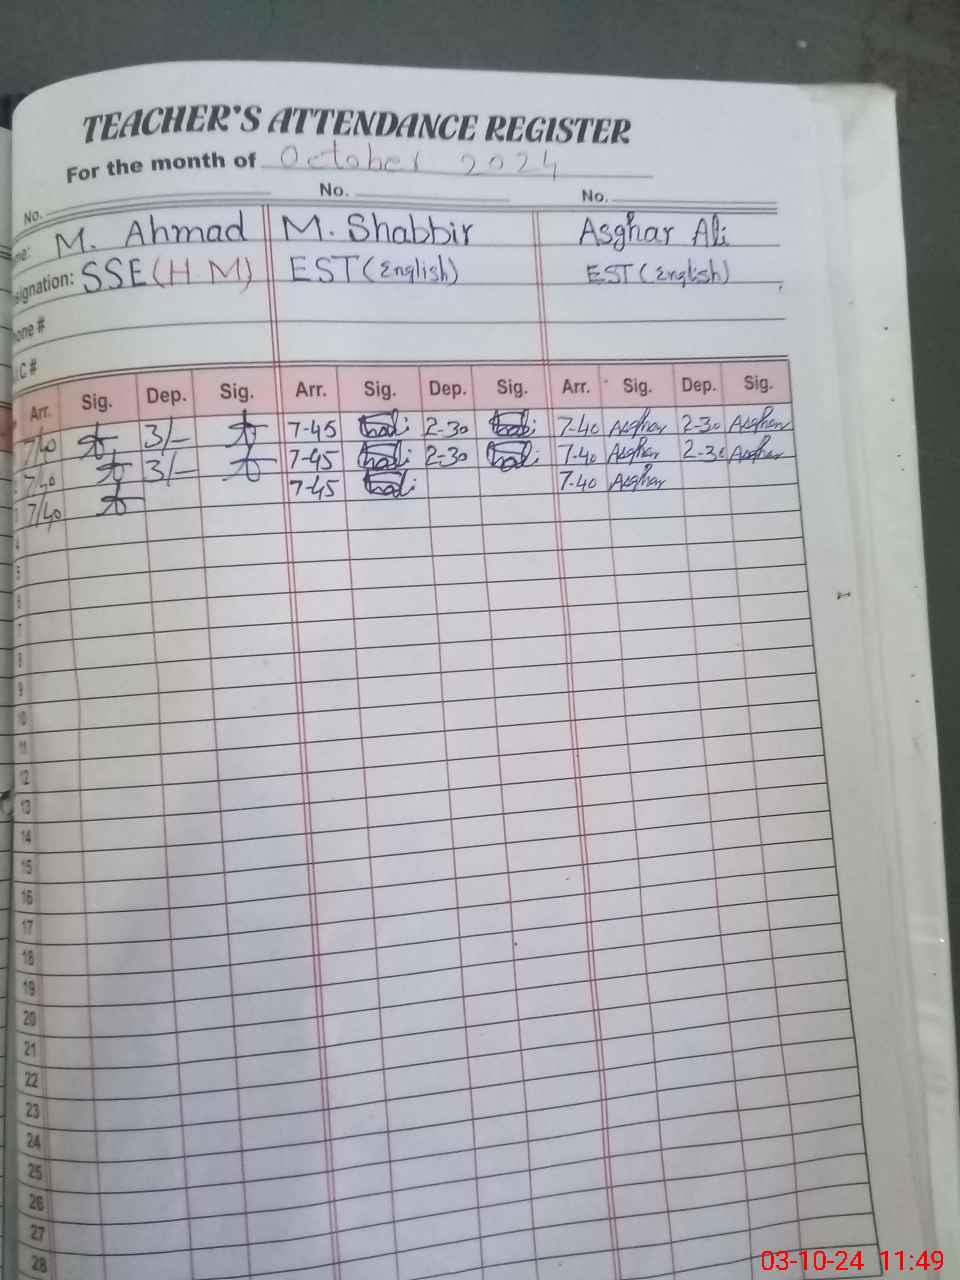 TEACHER'S ATTENDANCE REGISTER
For the month of October 2024
No. No. No.
me: M. Ahmad M. Shabbir Asghar Ali
signation: SSE (H.M) EST (English) EST (English)
one #
C #
Arr. Sig. Dep. Sig. Arr. Sig. Dep. Sig. Arr. Sig. Dep. Sig.
7/40 3/- 7-45 2-30 7-40 Asghar 2-30 Asghar
7/40 3/- 7-45 2-30 7-40 Asghar 2-30 Asghar
7/40 7-45 7-40 Asghar
4
5
6
7
8
9
10
11
12
13
14
15
16
17
18
19
20
21
22
23
24
25
26
27
28
03-10-24 11:49